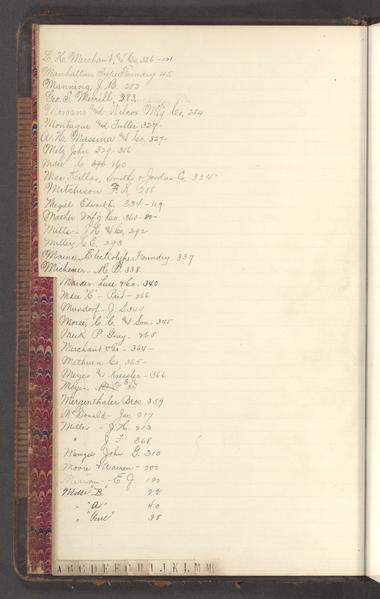 L. H. Merchant, & Co, 326-121
Manhattan Type Foundry 45
Manning, J. B. 202
Geo. S. Merrill, 383
& Wilcox Mfg Co, 284
Montague and Fuller 324-
W. H. Massina & Co, 327-
Metz John 329-386
Mdse "C" 160
Mac Kellar, Smiths & Jordan Co, 325
Mitchison F. R. 288
Megill Edward L. 334-119
Mather Mfg Co. 360-80-
Mills- J. H. & Co, 292
Miller, C. E. 293
Maine Electrotype Foundry 337
Michener- A. O. 338
Marder Luse & Co. 340
Mdse "C" - Paid - 266
Mundorf- J. S. 344
Morse, C. C. & Son- 345
Meek P. Gray- 268
Merchant & Co- 364-
Methuen Co, 365-
Meyer & Kessler- 366
Moyer
Mergenthaler Bros 359
McDonald- Jas 217
Miller - J. H. 213
" J. F. 368
Menzel John G. 310
Moore & Warren- 202
Merriam- E. J. 122
Mdse "B" 22
" "A" 40
" "Genl" 38
A B C D E F G H I J K L M Mc